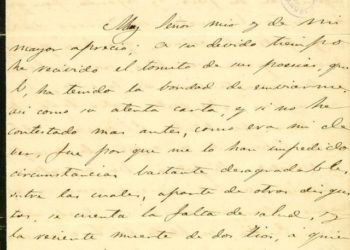 Muy Señor mio y de mi
mayor aprecio; a su devido tiempo
he recivido el tomito de sus poesias, que
V, ha tenido la bondad de enviarme,
asi como su atenta carta, y si no he
contestado mas antes, como era mi de
ver, fue por que me lo han impedido
circunstancias bastante desagradables,
entre las cuales, aparte de otros disgus
tos, se cuenta la falta de salud, y
la reciente muerte de dos tios, a quie